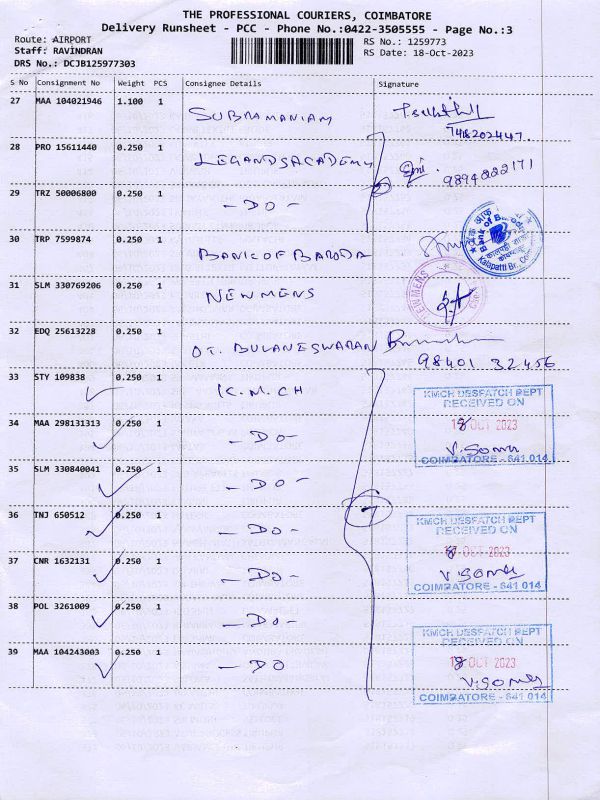 THE PROFESSIONAL COURIERS, COIMBATORE
Delivery Runsheet - PCC - Phone No.:0422-3505555 - Page No.:3
Route: AIRPORT
Staff: RAVINDRAN
DRS No.: DCJB125977303
RS No.: 1259773
RS Date: 18-Oct-2023
S No Consignment No Weight PCS Consignee Details Signature
27 MAA 104021946 1.100 1 SUBRAMANIAM
7418202447.
28 PRO 15611440 0.250 1 LEGANDSACADEMY
9894222171
29 TRZ 50006800 0.250 1 - DO -
30 TRP 7599874 0.250 1 BANK OF BARODA
Bank of Baroda
Kalapatti Br.
31 SLM 330769206 0.250 1 NEWMENS
NEWMENS
32 EDQ 25613228 0.250 1 OT. BULANESWARAN
98401 32456
33 STY 109838 0.250 1 K.M.CH
KMCH DESPATCH DEPT
RECEIVED ON
18 OCT 2023
34 MAA 298131313 0.250 1 - DO -
V. Soma
COIMBATORE - 641 014
35 SLM 330840041 0.250 1 - DO -
7
36 TNJ 650512 0.250 1 - DO -
KMCH DESPATCH DEPT
RECEIVED ON
18 OCT 2023
37 CNR 1632131 0.250 1 - DO -
COIMBATORE - 641 014
38 POL 3261009 0.250 1 - DO -
KMCH DESPATCH DEPT
RECEIVED ON
39 MAA 104243003 0.250 1 - DO
18 OCT 2023
COIMBATORE - 641 014